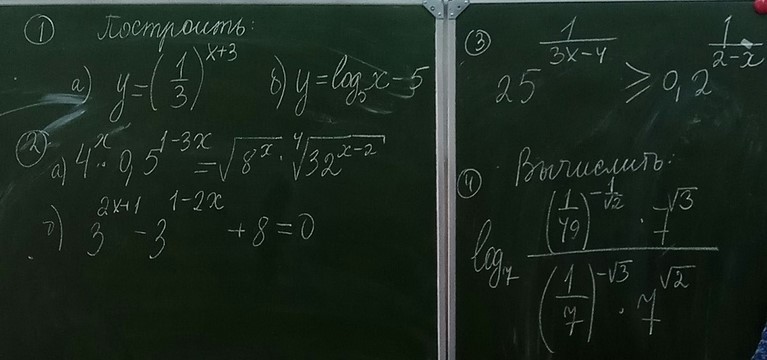 ① Построить:
а) y=(1/3)^(x+3) б) y=log₅x-5
② а) 4^x · 0,5^(1-3x) = √(8^x) · ∜(32^(x-2))
б) 3^(2x+1) - 3^(1-2x) + 8 = 0
③ 25^(1/(3x-4)) ⩾ 0,2^(1/(2-x))
④ Вычислить:
log₇ ((1/49)^(-1/√2) · 7^(√3)) / ((1/7)^(-√3) · 7^(√2))